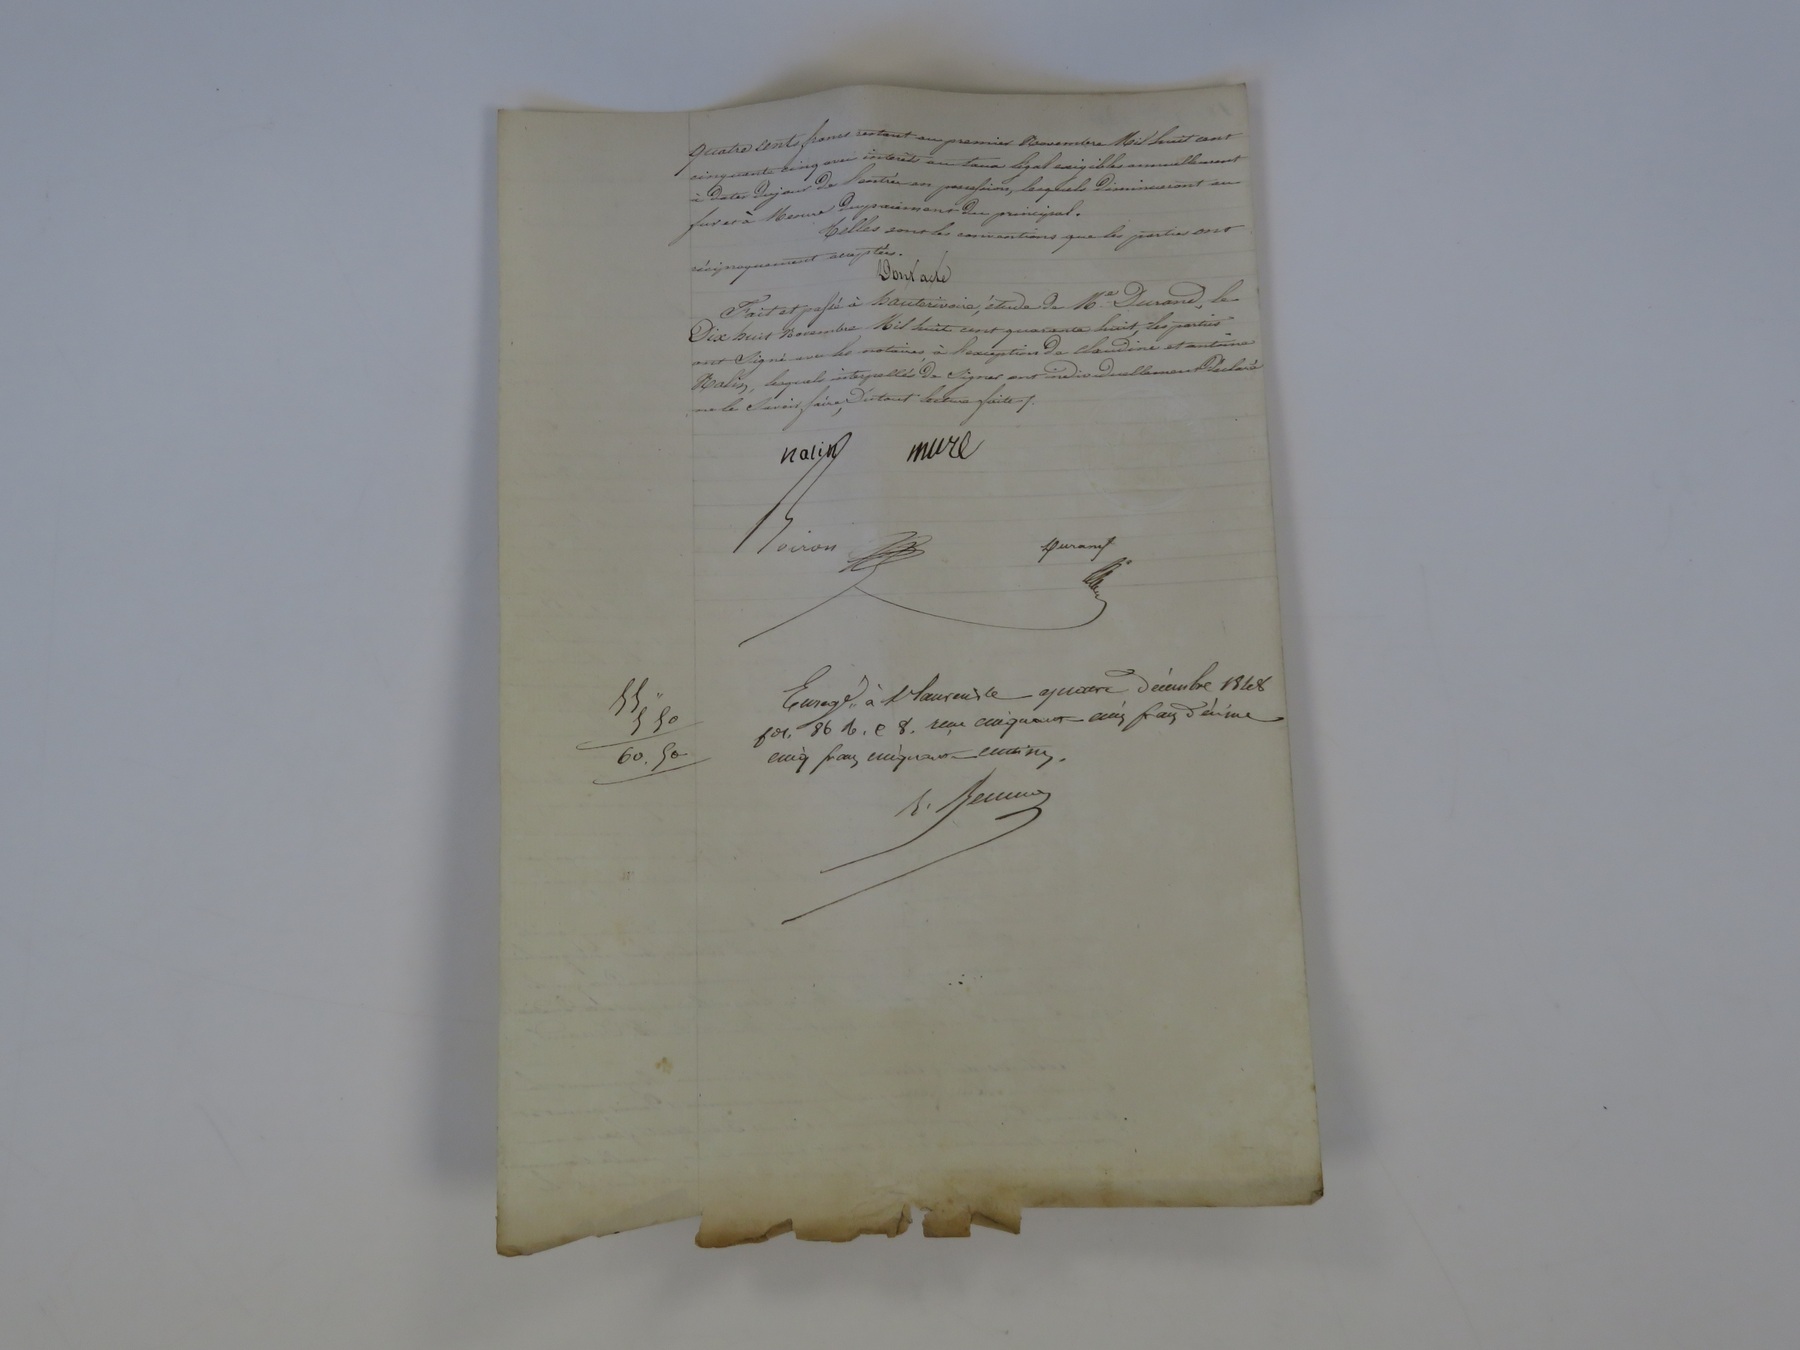 quatre cents francs restant au premier Novembre Mil huit cent
cinquante cinq avec intérêts au taux légal exigibles annuellement
à dater du jour de l'entrée en possession, lesquels diminueront au
fur et à Mesure du paiement du principal.
Telles sont les conventions que les parties ont
réciproquement acceptées.
Dont acte
Fait et passé à hauterivoire, étude de Me. Durand, le
Dix huit Novembre Mil huit cent quarante huit, les parties
ont Signé avec les notaires, à l'exception de Claudine et antoine
Nalin, lesquels interpellés de Signer ont individuellement Déclaré
ne le Savoir faire, du tout lecture faite /.
Nalin mure
Boiron Durand
Enregé. à St Laurent le quatre Décembre 1848
fol. 86 v. c 8. reçu cinquante cinq francs décime
cinq francs cinquante centimes.
55 "
5 50
60. 50